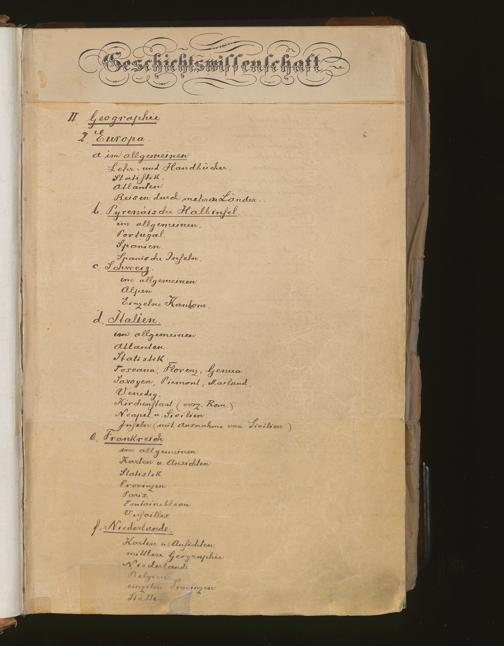 Geschichtswissenschaft
II Geographie
2. Europa
a im allgemeinen
Lehr- und Handbücher
Statistik
Atlanten
Reisen durch mehrere Länder.
b. Pyrenäische Halbinsel
im allgemeinen
Portugal
Spanien
Spanische Inseln.
c. Schweiz
im allgemeinen
Alpen
Einzelne Kantone
d. Italien
im allgemeinen
Atlanten
Statistik
Toscana, Florenz, Genua
Savoyen, Piemont, Mailand
Venedig
Kirchenstaat (vorz. Rom)
Neapel u. Sicilien
Inseln (mit Ausnahme von Sicilien)
e. Frankreich
im allgemeinen
Karten u. Ansichten
Statistik
Provinzen
Paris
Fontainebleau
Versailles
f. Niederlande.
Karten u. Ansichten
mittlere Geographie
Niederlande
Belgien
einzelne Provinzen
Städte